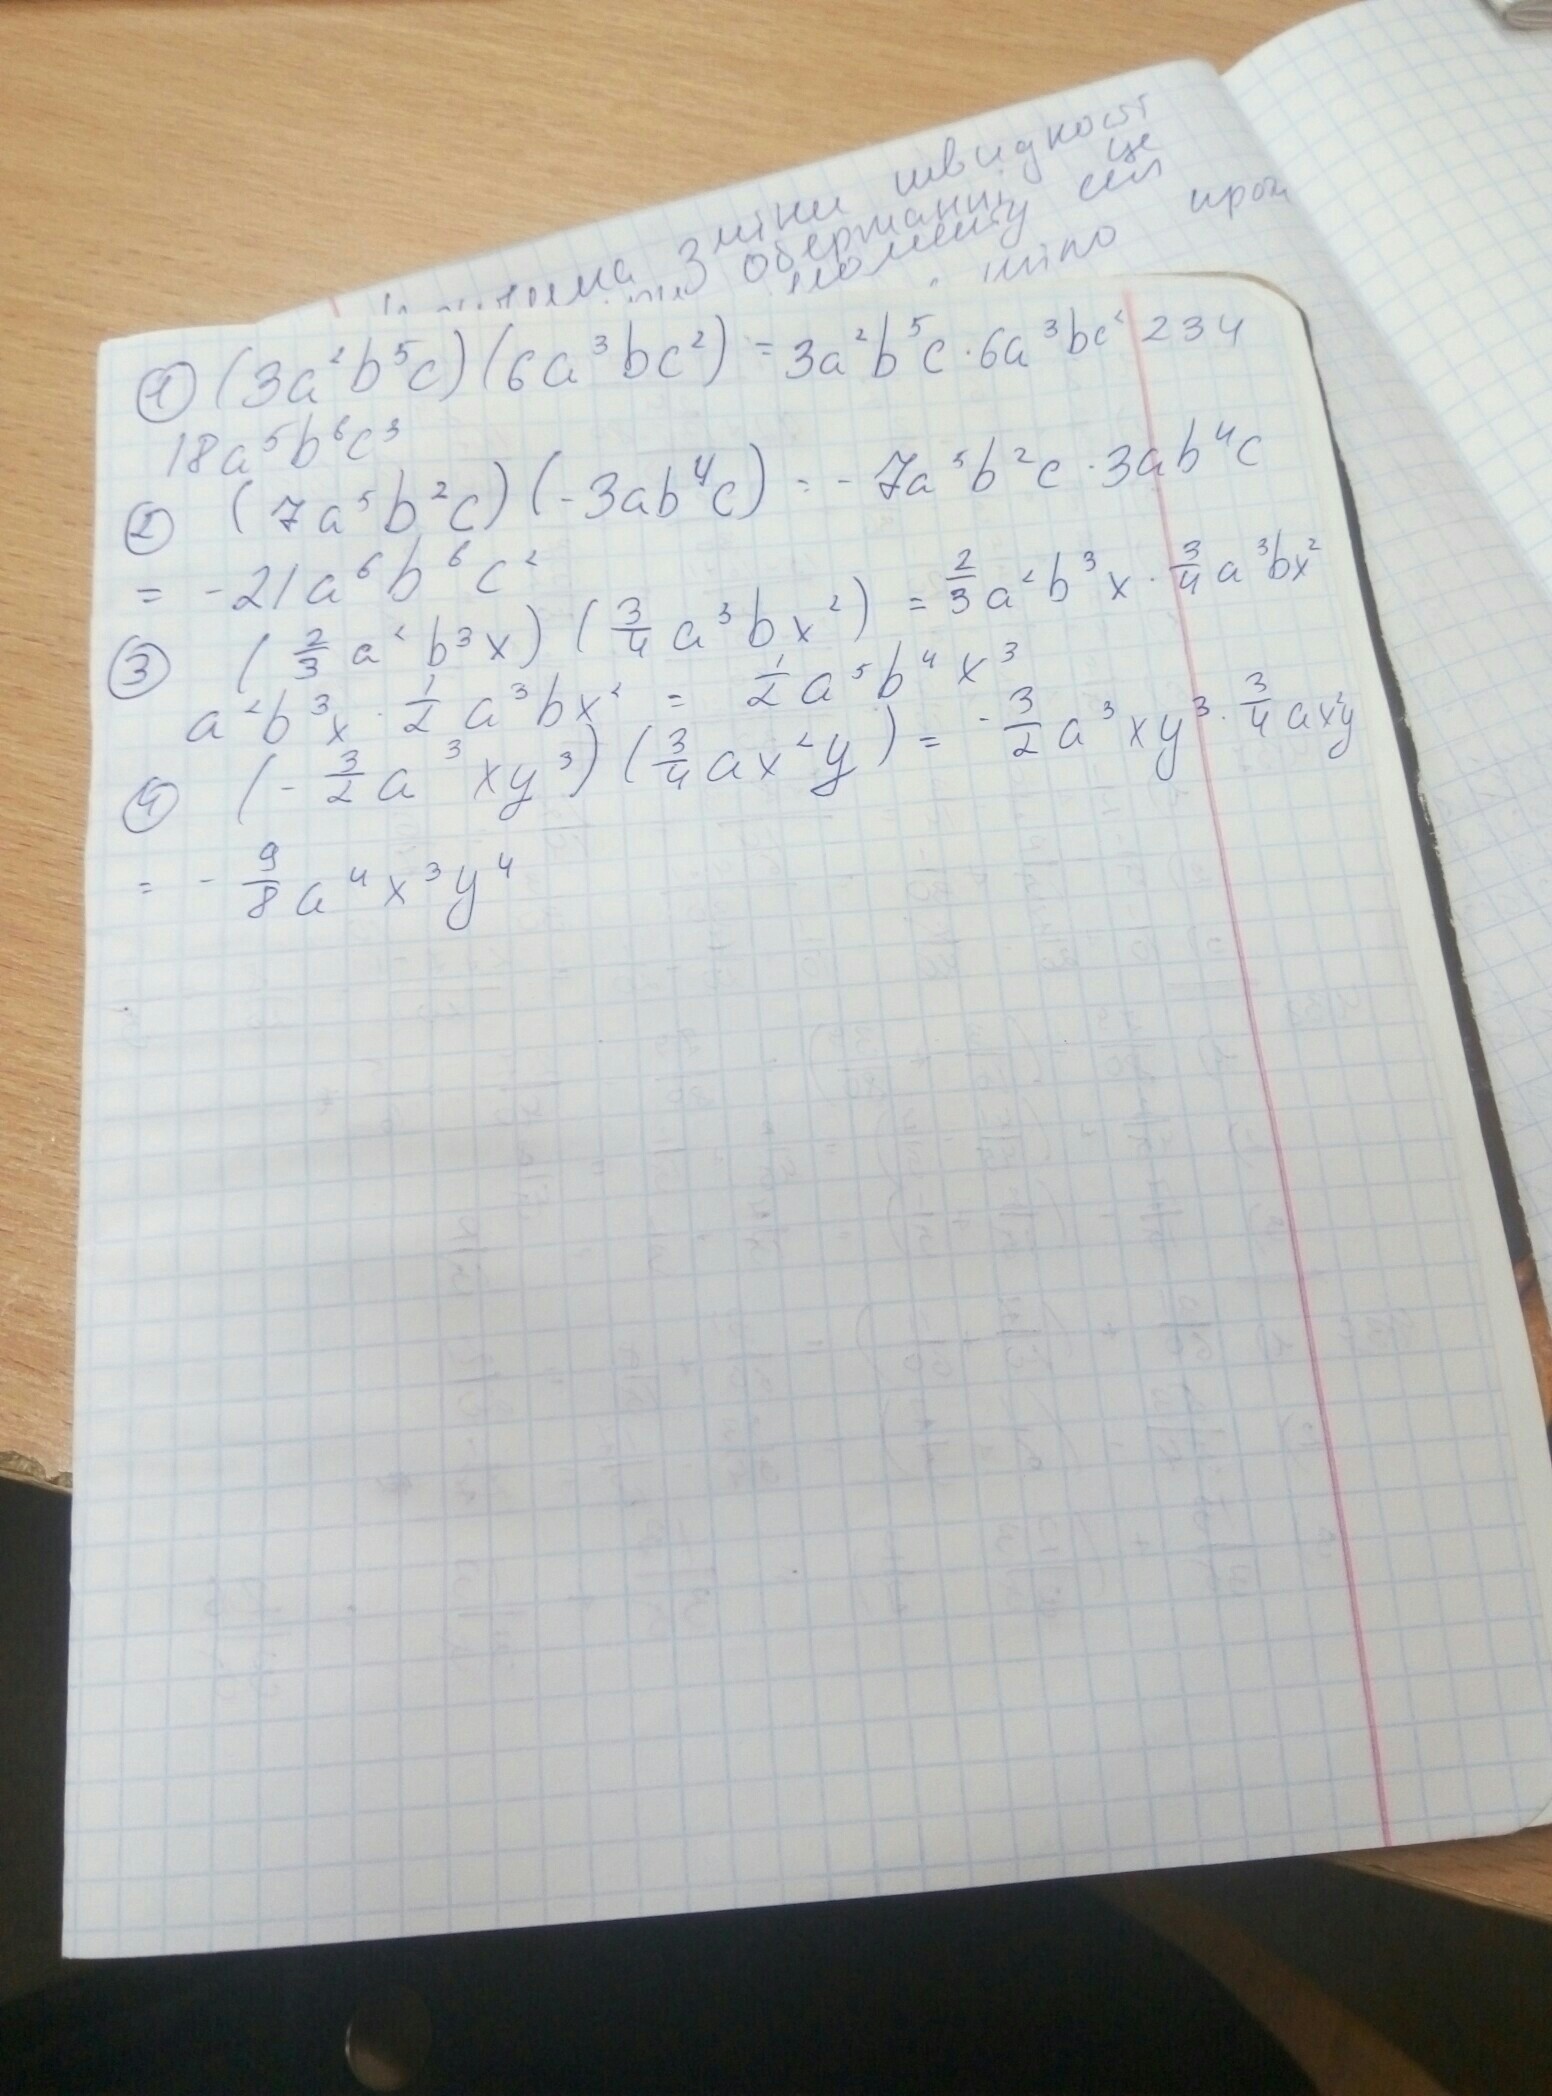 зміни швидкост
обертанні це
моменту сил
① (3a²b⁵c)(6a³bc²) = 3a²b⁵c · 6a³bc² 234
18a⁵b⁶c³
② (7a⁵b²c)(-3ab⁴c) = - 7a⁵b²c · 3ab⁴c
= -21a⁶b⁶c²
③ (2/3 a²b³x)(3/4 a³bx²) = 2/3 a²b³x · 3/4 a³bx²
a²b³x · 1/2 a³bx² = 1/2 a⁵b⁴x³
④ (-3/2 a³xy³)(3/4 ax²y) = -3/2 a³xy³ · 3/4 ax²y
= -9/8 a⁴x³y⁴